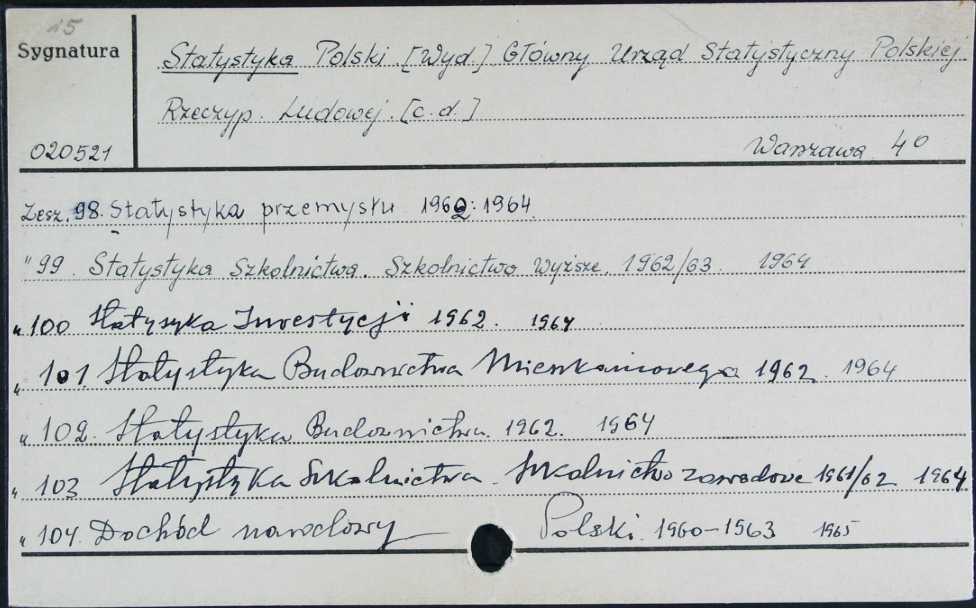 15
Sygnatura
Statystyka Polski [Wyd.] Główny Urząd Statystyczny Polskiej
Rzeczyp. Ludowej. [c.d.]
020521
Warszawa 4°
Zesz. 98. Statystyka przemysłu 1962. 1964.
" 99. Statystyka Szkolnictwa. Szkolnictwo Wyższe. 1962/63. 1964
" 100 Statysyka Inwestycji 1962. 1964
" 101 Statystyka Budownictwa Mieszkaniowego 1962. 1964
" 102. Statystyka Budownictwa. 1962. 1964
" 103 Statystyka Szkolnictwa. Szkolnictwo zawodowe 1961/62 1964.
" 104. Dochód narodowy Polski. 1960-1963 1965